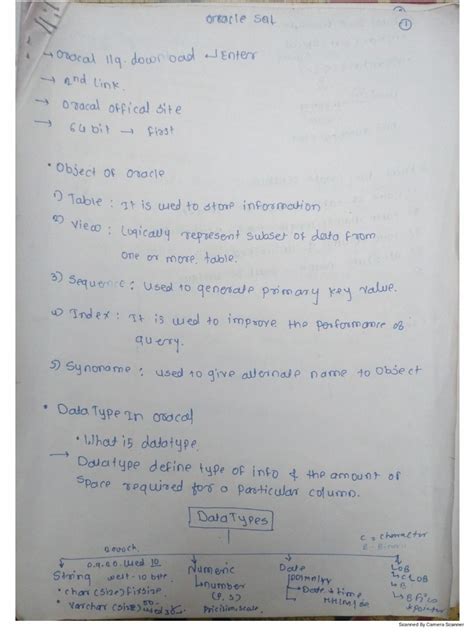 oracle sql
1
→ oracal 11g. download ↵ Enter
→ 2nd Link.
→ oracal offical site
→ 64 bit → first
• Object of oracle
1) Table : It is used to store information
2) View : Logically represent subset of data from
one or more. table.
3) Sequence : used to generate primary key value.
4) Index : It is used to improve the performance of
query.
5) Synoname : used to give alternate name to Object
• DataType In oracal
• What is datatype.
→ Datatype define type of info & the amount of
space required for a particular column.
DataTypes
C = character
String
Numeric
Date
LOB
• char (size) fixsize.
number
(P, S)
Date & time
CLOB
• varchar (size)
BLOB
Scanned By Camera Scanner